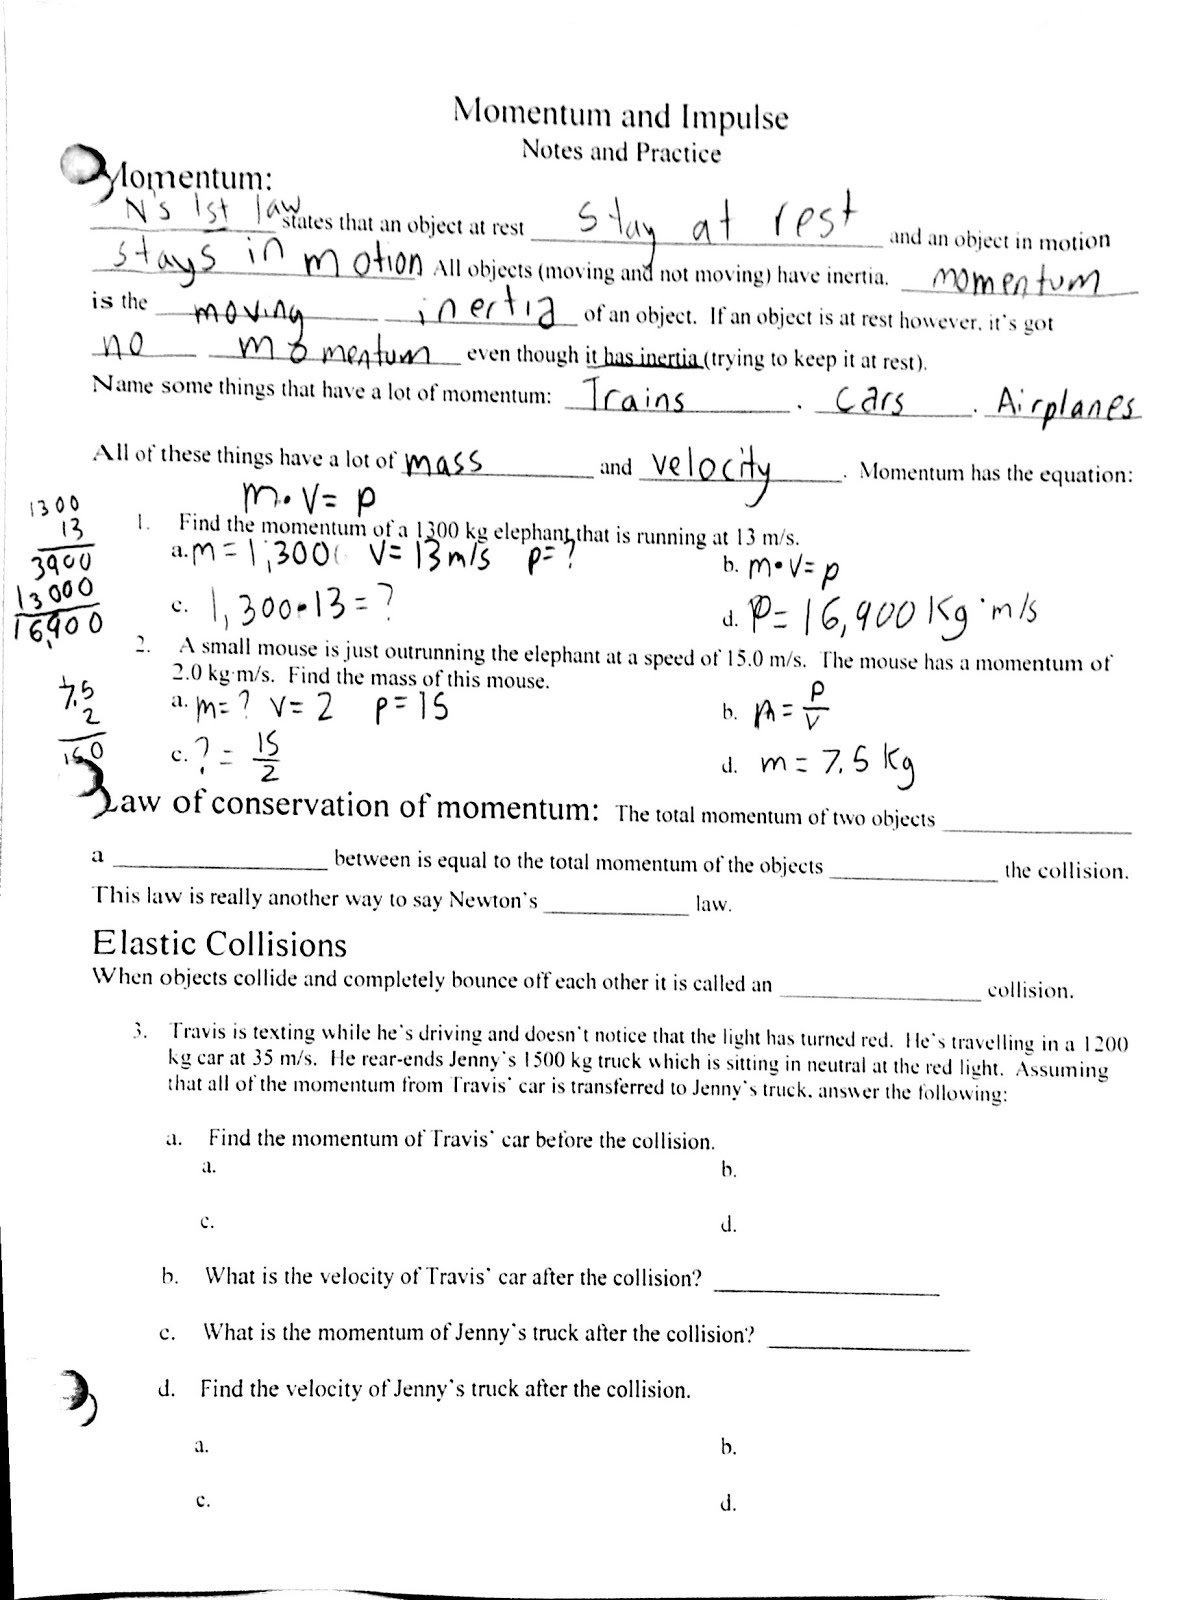 Momentum and Impulse
Notes and Practice
Momentum:
N's 1st law states that an object at rest stay at rest and an object in motion
stays in motion All objects (moving and not moving) have inertia. momentum
is the moving inertia of an object. If an object is at rest however, it's got
no momentum even though it has inertia (trying to keep it at rest).
Name some things that have a lot of momentum: Trains, cars, Airplanes
All of these things have a lot of mass and velocity. Momentum has the equation:
m·v=p
1300
13
3900
13000
16,900
1. Find the momentum of a 1300 kg elephant that is running at 13 m/s.
a. m=1,300 v=13m/s p=?
b. m·v=p
c. 1,300·13=?
d. P=16,900 Kg·m/s
2. A small mouse is just outrunning the elephant at a speed of 15.0 m/s. The mouse has a momentum of
2.0 kg·m/s. Find the mass of this mouse.
7.5
2
150
a. m=? v=2 p=15
b. m=p/v
c. ?=15/2
d. m=7.5 Kg
Law of conservation of momentum: The total momentum of two objects ____
a ____ between is equal to the total momentum of the objects ____ the collision.
This law is really another way to say Newton's ____ law.
Elastic Collisions
When objects collide and completely bounce off each other it is called an ____ collision.
3. Travis is texting while he's driving and doesn't notice that the light has turned red. He's travelling in a 1200
kg car at 35 m/s. He rear-ends Jenny's 1500 kg truck which is sitting in neutral at the red light. Assuming
that all of the momentum from Travis' car is transferred to Jenny's truck, answer the following:
a. Find the momentum of Travis' car before the collision.
a. b.
c. d.
b. What is the velocity of Travis' car after the collision? ____
c. What is the momentum of Jenny's truck after the collision? ____
d. Find the velocity of Jenny's truck after the collision.
a. b.
c. d.